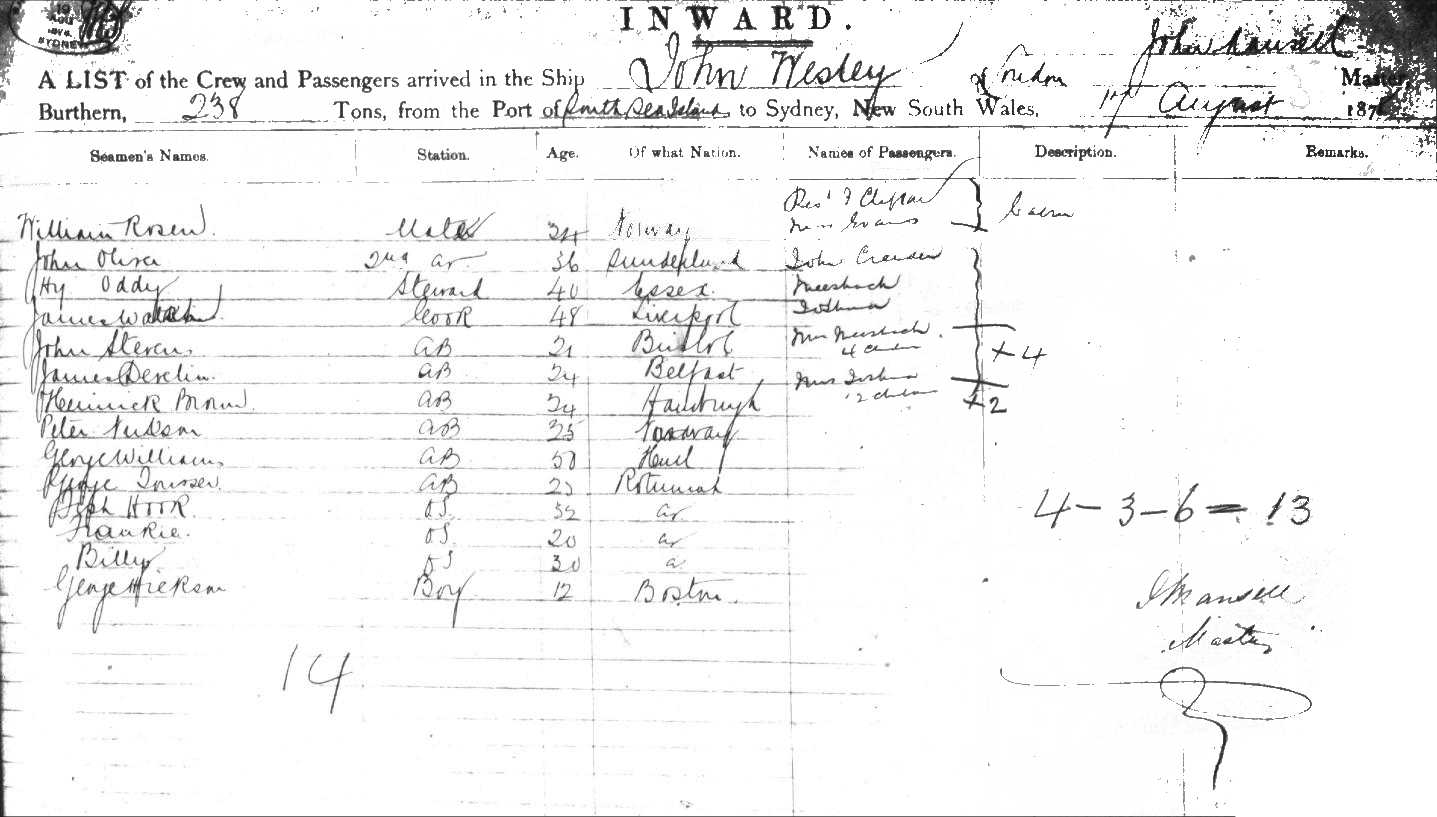 19
SYDNEY
INWARD.
A LIST of the Crew and Passengers arrived in the Ship John Wesley of London John Mansell Master,
Burthern, 238 Tons, from the Port of South Sea Islands to Sydney, New South Wales, 17 August 187
Seamen's Names. Station. Age. Of what Nation. Names of Passengers. Description. Remarks.
Revd
Mrs Evans
William Rosen. Mate Norway
John Oliver 2nd do 36 Sunderland John
Hy Oddy Steward 40 Essex Meeshach
James Cook 48 Liverpool Joshua
Mrs Meeshach
John Stevens AB 21 Bristol 4 Children +4
James Devlin. AB 24 Belfast Mrs Joshua
2 children +2
Heinrick Brown AB 24 Hamburgh
Peter AB 25 Norway
George Williams AB 50 Hull
George AB Rotumah
Hook OS 32 do
Frankie. OS 20 do
Billy OS 30 do
George Hickson Boy 12 Boston.
4-3-6 = 13
J Mansell
Master
14